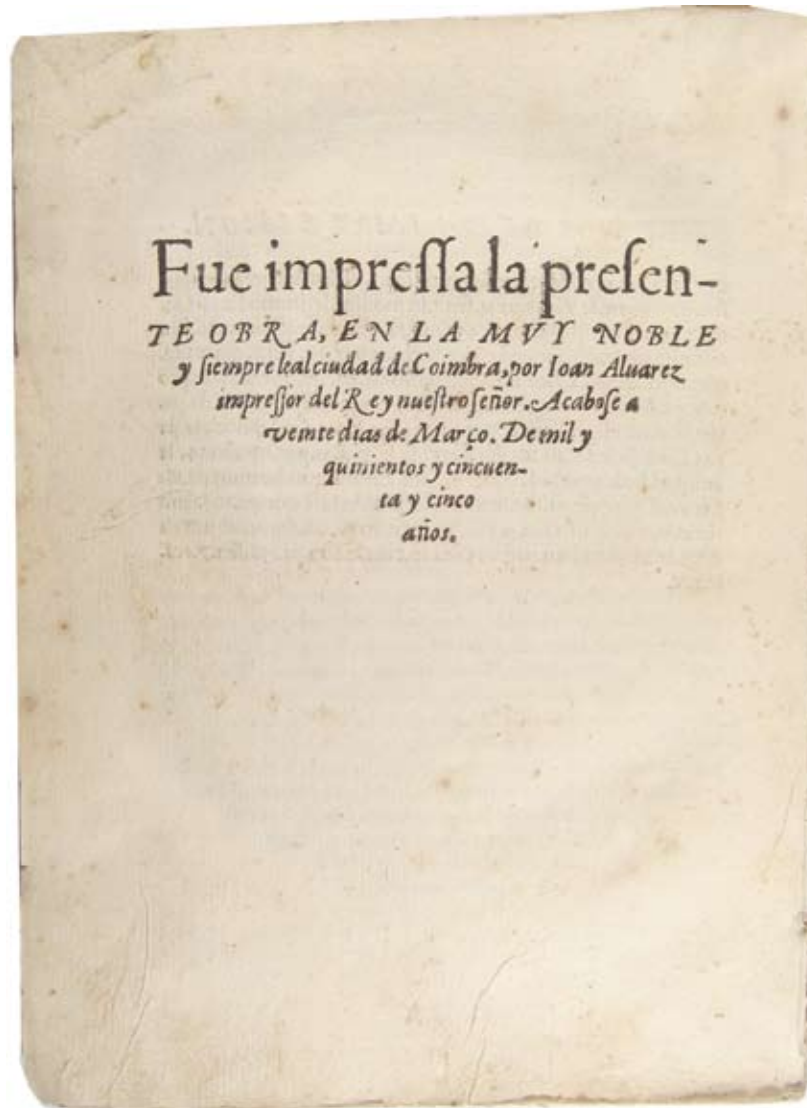 Fue impreſſa la preſen-
TE OBRA, EN LA MVY NOBLE
y ſiempre leal ciudad de Coimbra, por Ioan Aluarez
impreſſor del Rey nueſtro ſeñor. Acaboſe a
veinte dias de Março. De mil y
quinientos y cincuen-
ta y cinco
años.